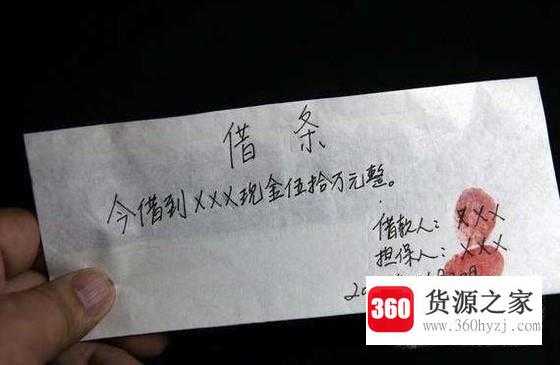 借条
今借到XXX现金伍拾万元整。
借款人：XXX
担保人：XXX
360 货源之家
www.360hyzj.com